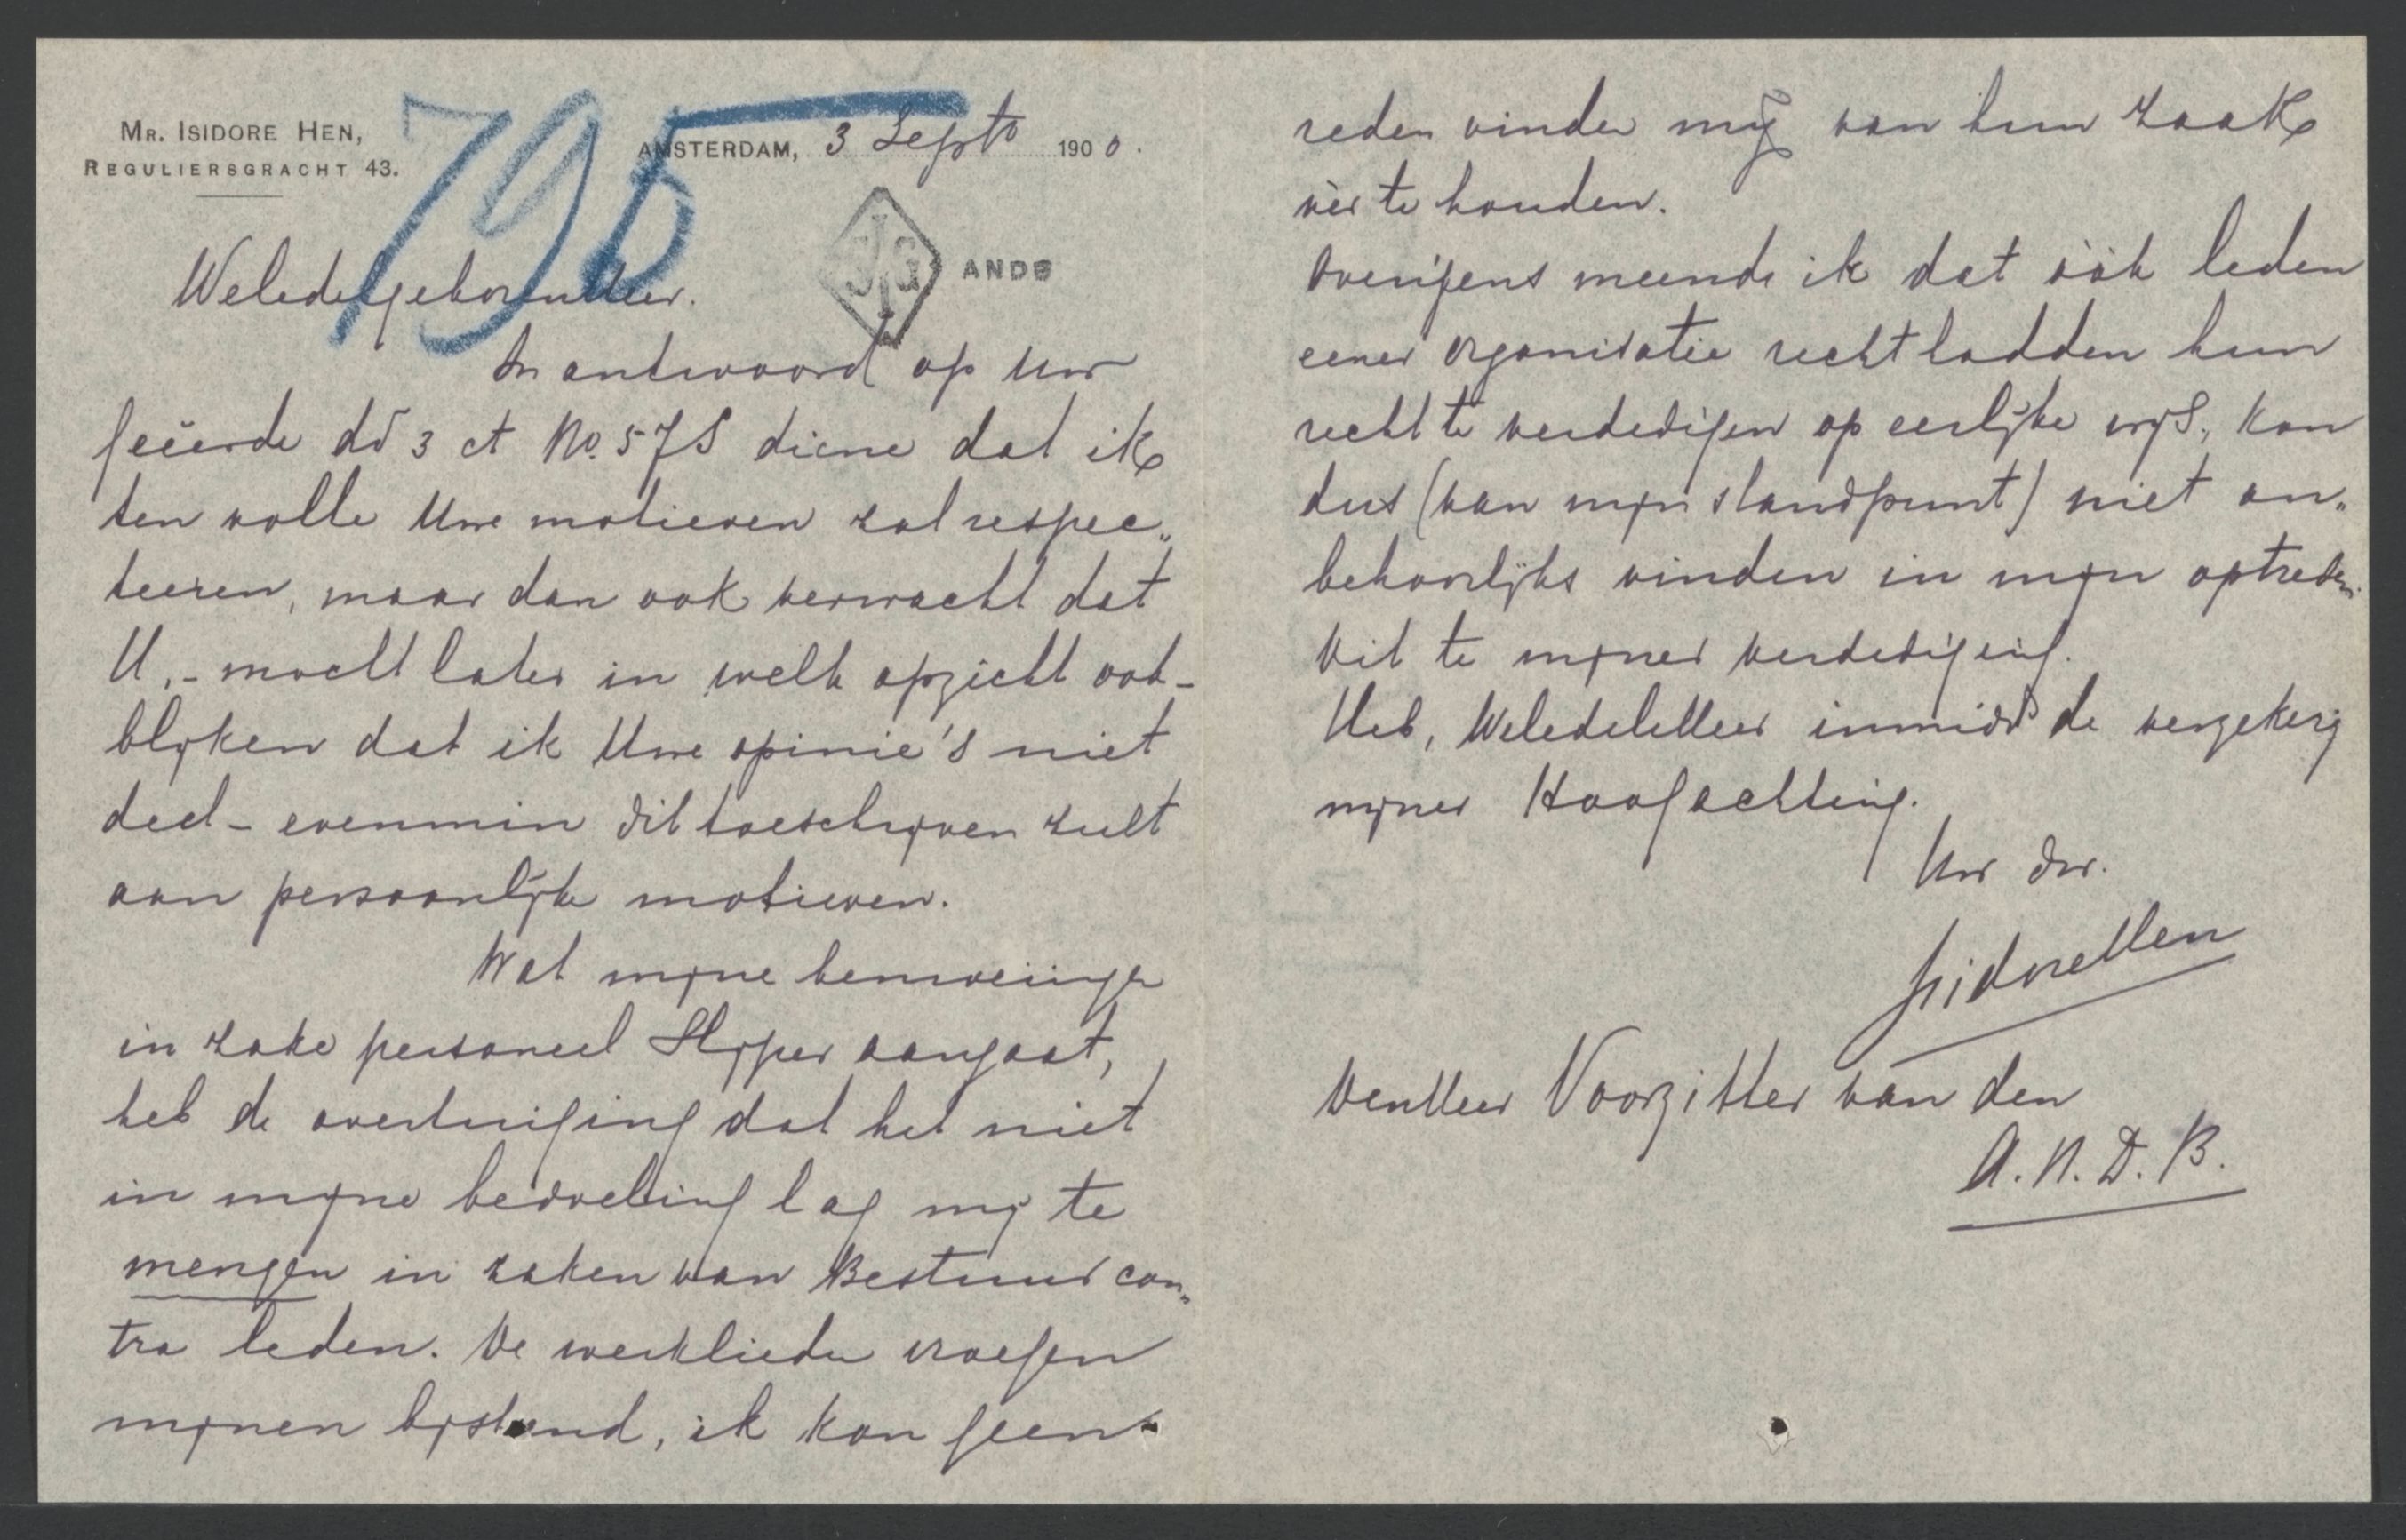 MR. ISIDORE HEN,
REGULIERSGRACHT 43.
795
AMSTERDAM, 3 Septr 1900.
ANDB
Weledelgeboren Heer.
In antwoord op Uw
geëerde dd 3 ct No. 575 diene dat ik
ten volle Uwe motieven zal respec„
teeren, maar dan ook verwacht dat
U,- mocht later in welk opzicht ook-
blyken dat ik Uwe opinie's niet
deel - evenmin dit toeschryven zult
aan persoonlyke motieven.
Wat myne bemoeiingen
in zake personeel Slyper aangaat,
heb de overtuiging dat het niet
in myne bedoeling lag my te
mengen in zaken van Bestuur con„
tra leden. De werklieden vroegen
mynen bystand, ik kon geen
reden vinden my van hun zaak
vèr te houden.
Overigens meende ik dat òòk leden
eener organisatie recht hadden hun
recht te verdedigen op eerlyke wys, kan
dus (van myn standpunt) niet on„
behoorlyks vinden in myn optreden.
Dit te myner verdediging.
Heb, Weledele Heer inmidds de verzekerg
myner Hoogachting.
Uw dw.
Isidore Hen
Den Heer Voorzitter van den
A.N.D.B.